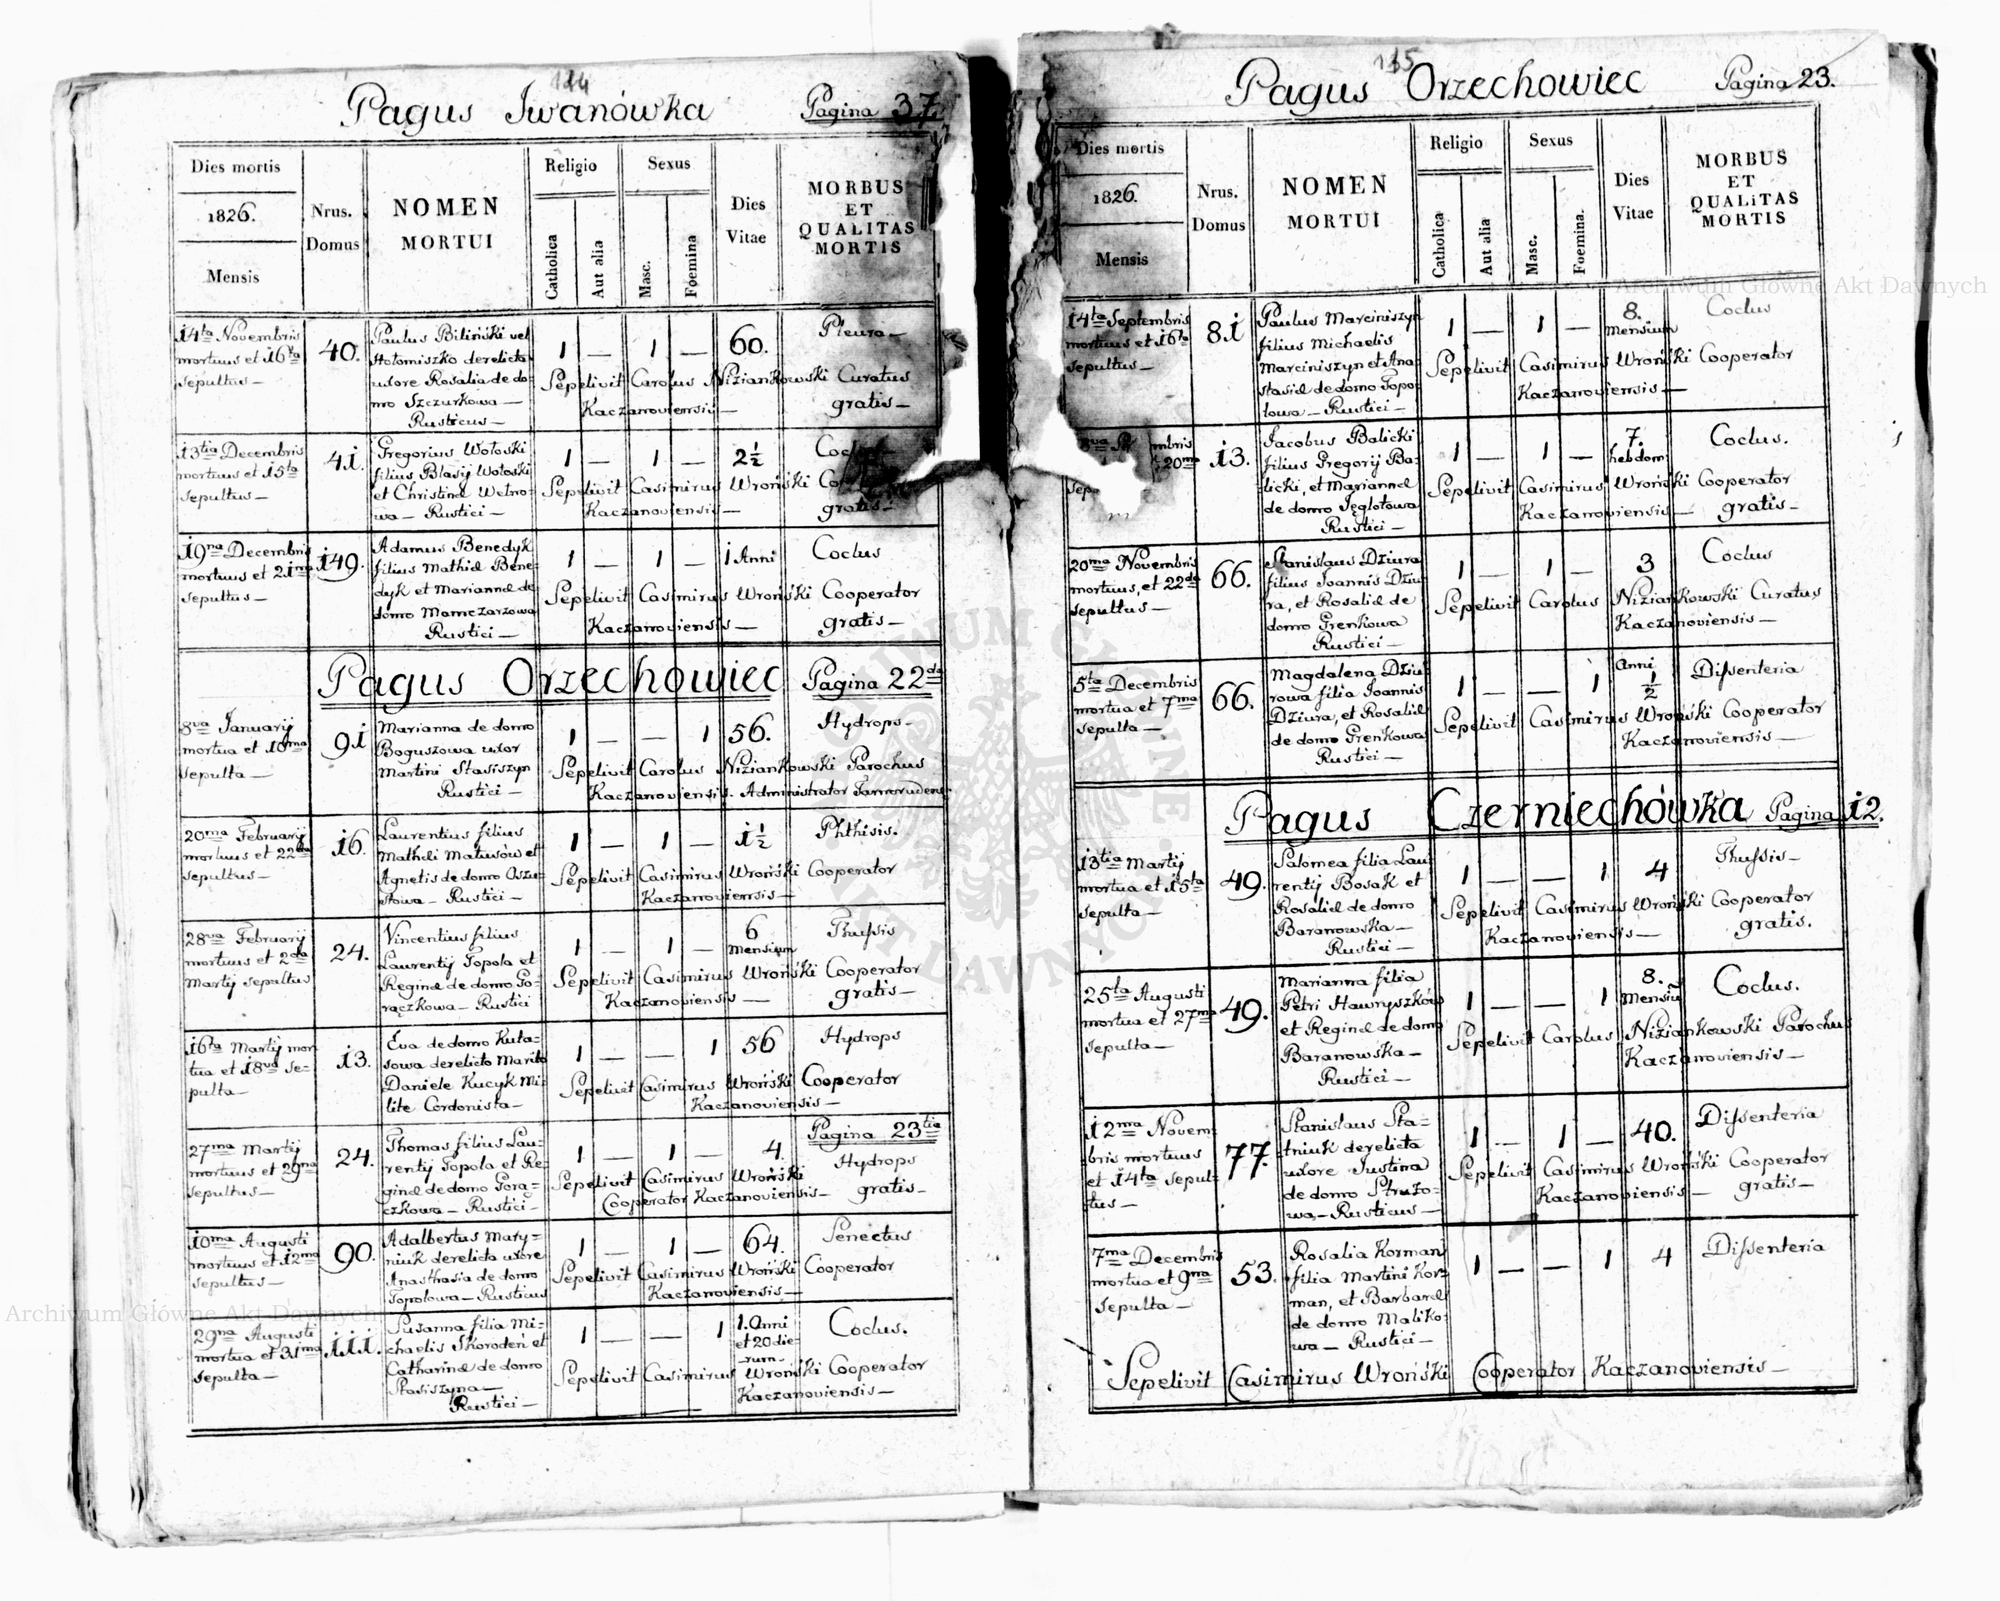 144
Pagus Iwanówka Pagina 37.
Dies mortis
1826.
Mensis
Nrus.
Domus
NOMEN
MORTUI
Religio
Catholica
Aut alia
Sexus
Masc.
Foemina
Dies
Vitae
MORBUS
ET
QUALITAS
MORTIS
14ta Novembris
mortuus et 16ta
sepultus —
40.
Paulus Biliński vel
Hołomiszko derelicta
uxore Rosalia de do-
mo Szczurkowa —
Rusticus —
1 — 1 — 60. Pleura —
Sepelivit Carolus Niziankowski Curatus
Kaczanoviensis — gratis —
13tia Decembris
mortuus et 15ta
sepultus —
41.
Gregorius Wołoski
filius Blasij Wołoski
et Christinæ Welno-
wa — Rustici —
1 — 1 — 2½
Sepelivit Casimirus Wroński
Kaczanoviensis — gratis —
19na Decembris
mortuus et 21ma
sepultus —
149.
Adamus Benedyk
filius Mathiæ Bene-
dyk et Mariannæ de
domo Mamczarzowa
Rustici —
1 — 1 — 1 Anni Coclus
Sepelivit Casimirus Wroński Cooperator
Kaczanoviensis — gratis —
Pagus Orzechowiec Pagina 22da
8va Januarij
mortua et 10ma
sepulta —
91
Marianna de domo
Boguszowa uxor
Martini Stasiszyn
Rustici —
1 — — 1 56. Hydrops —
Sepelivit Carolus Niziankowski Parochus
Kaczanoviensis. Administrator Tarnorudens.
20ma Februarij
mortuus et 22da
sepultus —
16.
Laurentius filius
Mathæi Matusów et
Agnetis de domo Oszu-
stowa — Rustici —
1 — 1 — 1½ Phthisis.
Sepelivit Casimirus Wroński Cooperator
Kaczanoviensis —
28va Februarij
mortuus et 2da
Martij sepultus
24.
Vincentius filius
Laurentij Topola et
Reginæ de domo Go-
rączkowa — Rustici
1 — 1 — 6 Mensium Thussis
Sepelivit Casimirus Wroński Cooperator
Kaczanoviensis — gratis —
16ta Martij mor
tua et 18va se-
pulta —
13.
Eva de domo Kuta-
sowa derelicto Marito
Daniele Kucyk Mi-
lite Cordonista —
1 — — 1 56 Hydrops
Sepelivit Casimirus Wroński Cooperator
Kaczanoviensis —
Pagina 23tia
27ma Martij
mortuus et 29na
sepultus —
24.
Thomas filius Lau-
rentij Topola et Re-
ginæ de domo Gora-
czkowa — Rustici —
1 — 1 — 4. Hydrops
Sepelivit Casimirus Wroński
Cooperator Kaczanoviensis — gratis —
10ma Augusti
mortuus et 12ma
sepultus —
90.
Adalbertus Mary-
niuk derelicta uxore
Anasthasia de domo
Topolowa — Rusticus
1 — 1 — 64. Senectus
Sepelivit Casimirus Wroński Cooperator
Kaczanoviensis —
29na Augusti
mortua et 31ma
sepulta —
111.
Susanna filia Mi-
chaelis Skoroden et
Catharinæ de domo
Stasiszyna —
Rustici —
1 — — 1 1. Anni
et 20 die-
rum — Coclus.
Sepelivit Casimirus Wroński Cooperator
Kaczanoviensis —
Pagus Orzechowiec Pagina 23.
Dies mortis
1826.
Mensis
Nrus.
Domus
NOMEN
MORTUI
Religio
Catholica
Aut alia
Sexus
Masc.
Foemina.
Dies
Vitae
MORBUS
ET
QUALiTAS
MORTIS
14ta Septembris
mortuus et 16ta
sepultus —
81
Paulus Marciniszyn
filius Michaelis
Marciniszyn et Ana-
stasiæ de domo Topo-
lowa — Rustici —
1 — 1 — 8. Mensium Coclus
Sepelivit Casimirus Wroński Cooperator
Kaczanoviensis —
mbris
20ma
13.
Jacobus Balicki
filius Gregorij Ba-
licki, et Mariannæ
de domo Jęglołowa
Rustici —
1 — 1 — 7. hebdom: Coclus.
Sepelivit Casimirus Wroński Cooperator
Kaczanoviensis — gratis —
20ma Novembris
mortuus, et 22da
sepultus —
66.
Stanislaus Dziura
filius Joannis Dziu-
ra, et Rosaliæ de
domo Grenkowa
Rustici —
1 — 1 — 3 Coclus
Sepelivit Carolus Niziankowski Curatus
Kaczanoviensis —
5ta Decembris
mortua et 7ma
sepulta —
66.
Magdalena Dziu-
rowa filia Joannis
Dziura, et Rosaliæ
de domo Grenkowa
Rustici —
1 — — 1 Anni ½ Dissenteria
Sepelivit Casimirus Wroński Cooperator
Kaczanoviensis —
Pagus Czerniechówka Pagina 12.
13tia Martij
mortua et 15ta
sepulta —
49.
Salomea filia Lau-
rentij Bosak et
Rosaliæ de domo
Baranowska —
Rustici —
1 — — 1 4 Thussis —
Sepelivit Casimirus Wroński Cooperator
Kaczanoviensis — gratis.
25ta Augusti
mortua et 27ma
sepulta —
49.
Marianna filia
Petri Hawryszków
et Reginæ de domo
Baranowska —
Rustici —
1 — — 1 8. Mensiu Coclus.
Sepelivit Carolus Niziankowski Parochus
Kaczanoviensis —
12ma Novem-
bris mortuus
et 14ta sepul-
tus —
77.
Stanislaus Sta-
tniuk derelicta
uxore Justina
de domo
wa — Rusticus —
1 — 1 — 40. Dissenteria
Sepelivit Casimirus Wroński Cooperator
Kaczanoviensis — gratis —
7ma Decembris
mortua et 9na
sepulta —
53.
Rosalia Korman
filia Martini Kor-
man, et Barbaræ
de domo Maliko-
wa — Rustici —
1 — — 1 4 Dissenteria
Sepelivit Casimirus Wroński Cooperator Kaczanoviensis —
Archiwum Główne Akt Dawnych
Archiwum Główne Akt Dawnych
ARCHIWUM GŁÓWNE AKT DAWNYCH